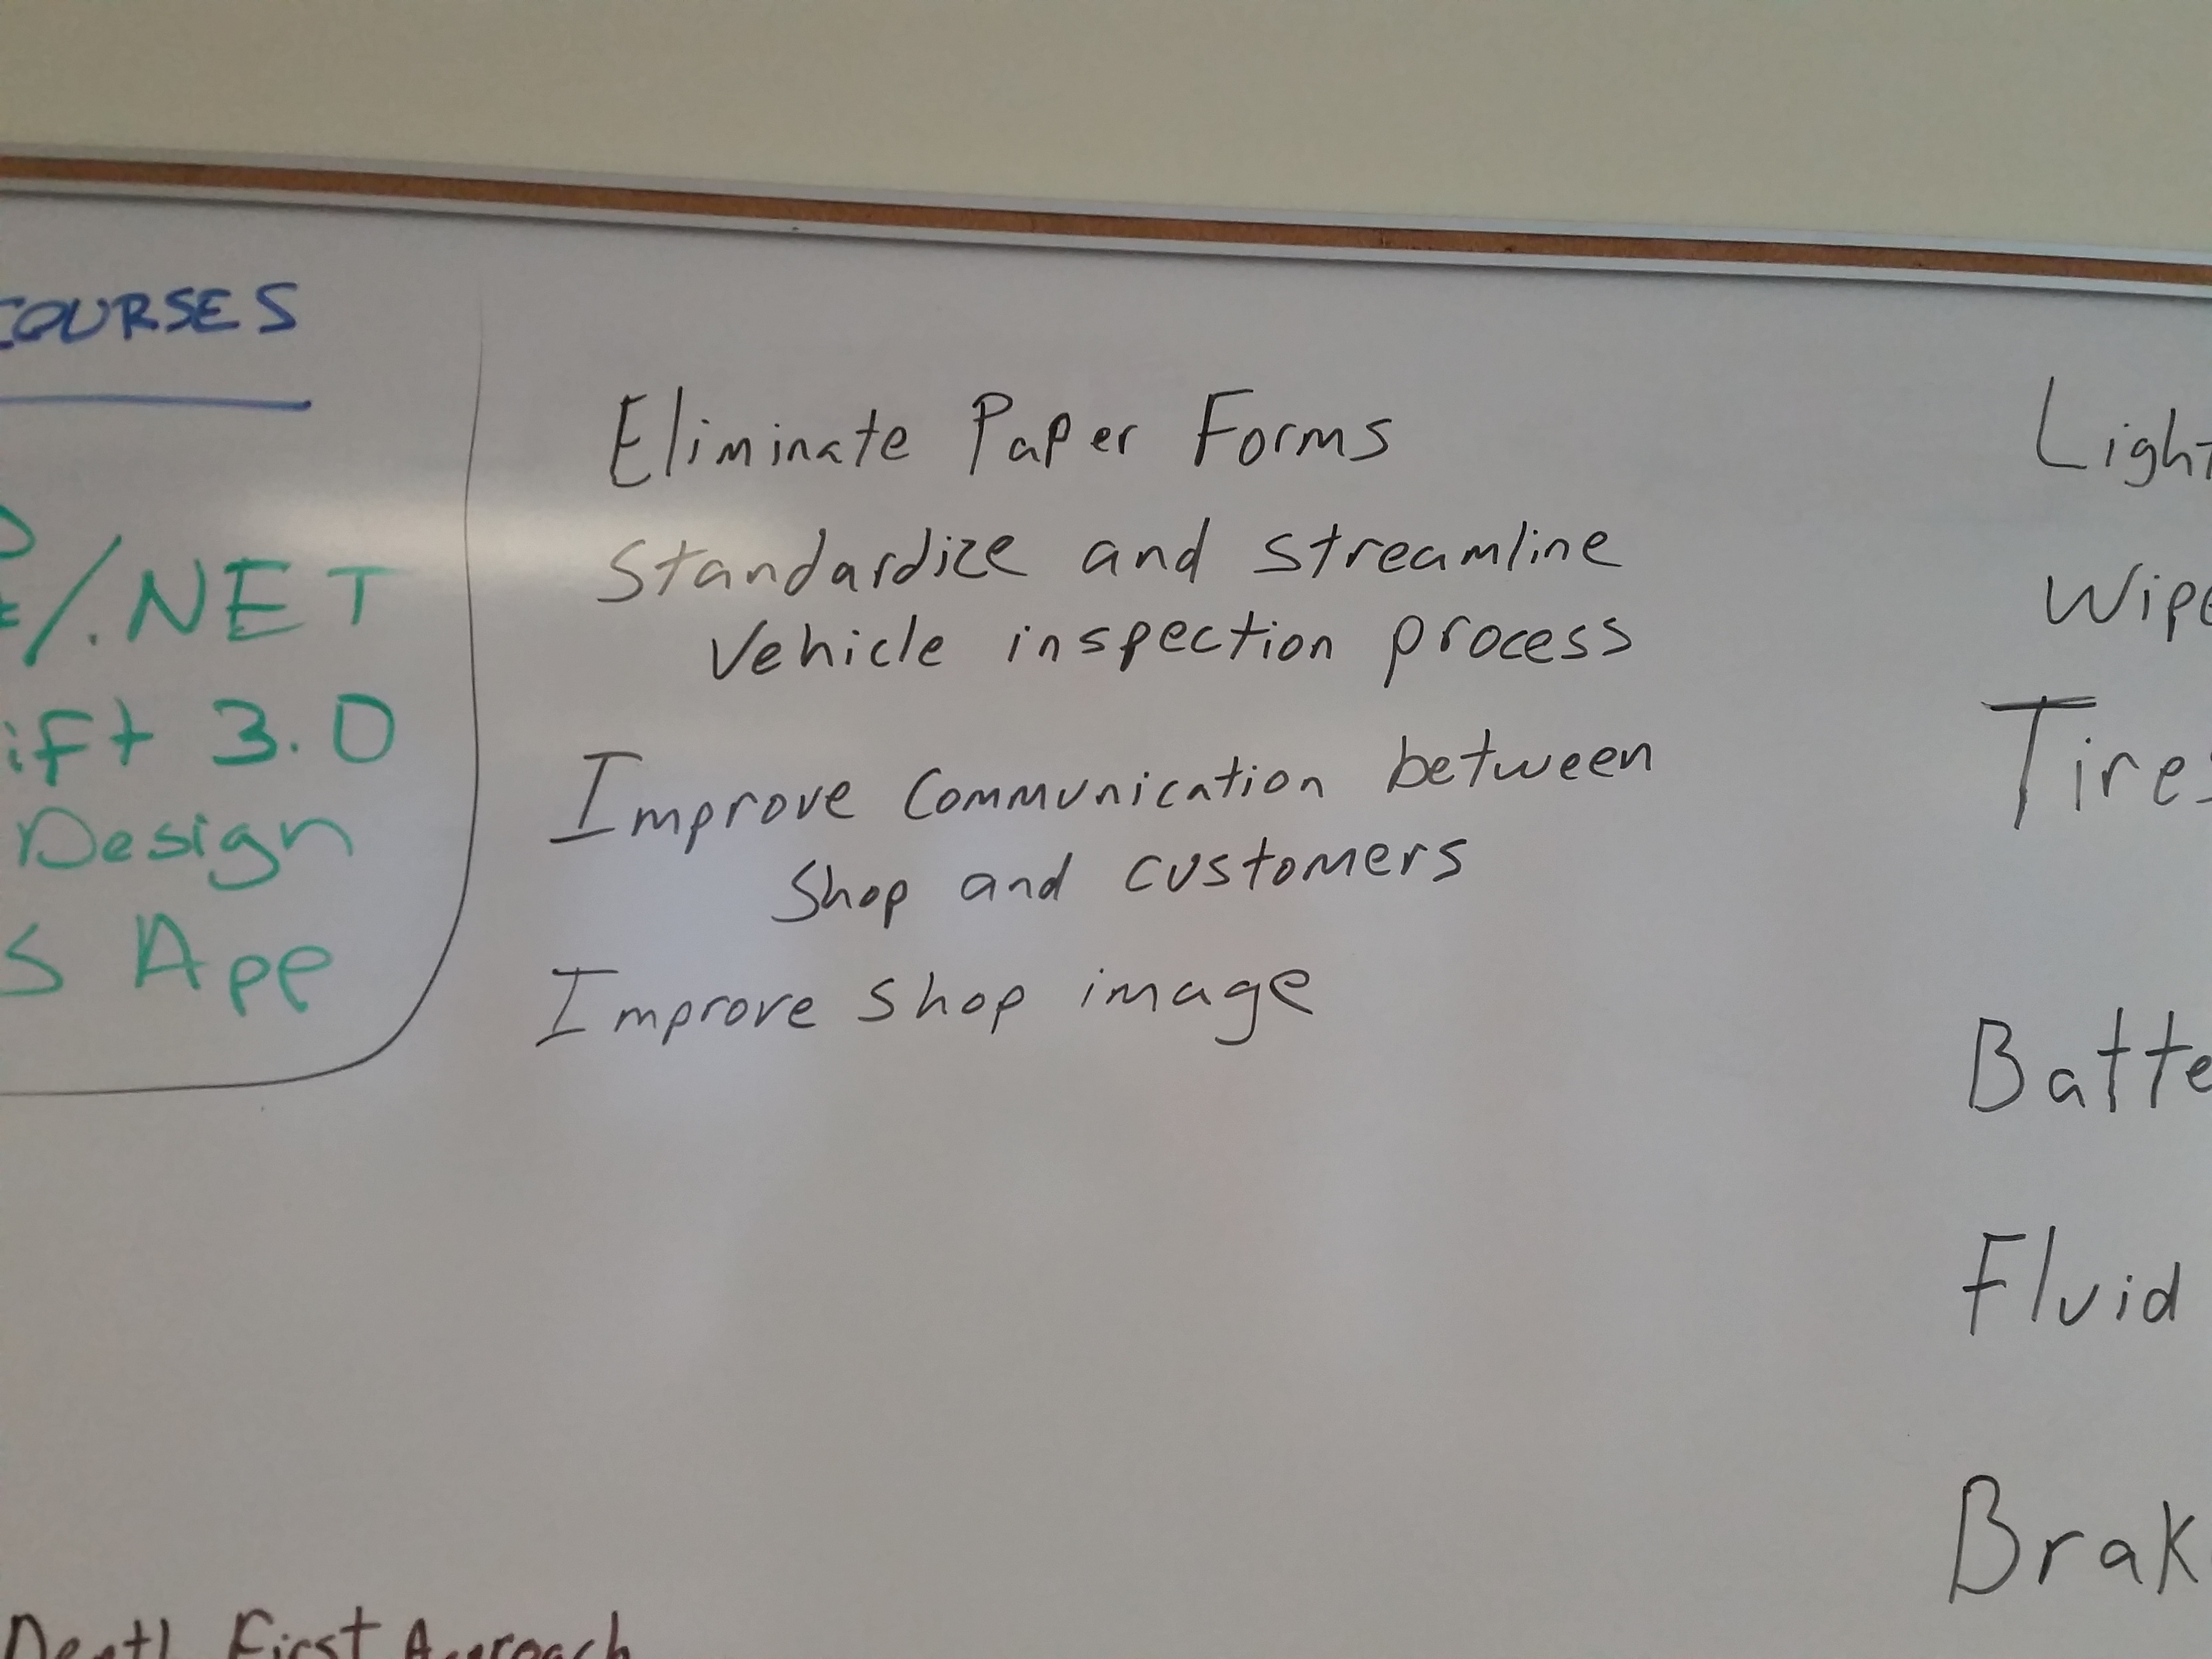 COURSES
/.NET
3.0
Design
App
Eliminate Paper Forms
Standardize and streamline
Vehicle inspection process
Improve Communication between
Shop and customers
Improve shop image
Light
Wipe
Tires
Batte
Fluid
Brak
Depth First Approach